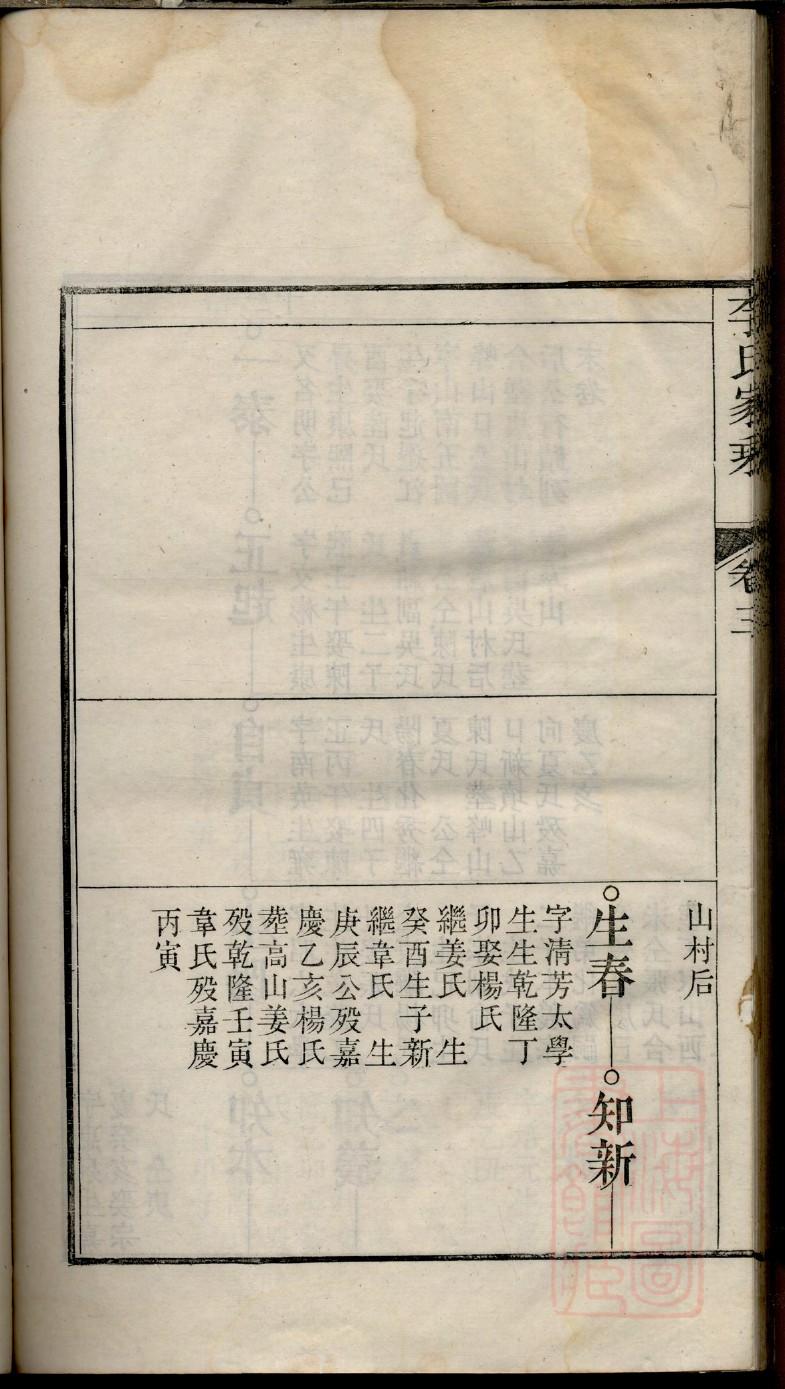 李氏家乘
卷三
山村后
生春
知新
字清芳太學
生生乾隆丁
卯娶楊氏
繼姜氏　生
癸酉生子新
繼韋氏　生
庚辰公殁嘉
慶乙亥楊氏
塟高山姜氏
殁乾隆壬寅
韋氏殁嘉慶
丙寅